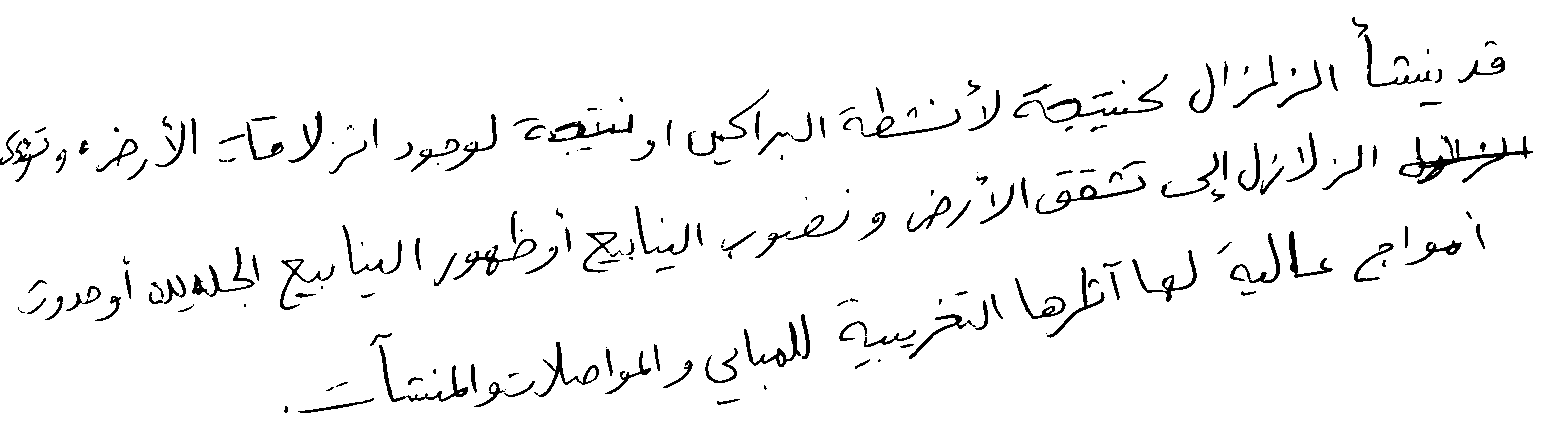 قد ينشأ الزلزال كنتيجة لأنشطة البراكين او نتيجة لوجود انزلاقات الأرض، وتؤدي
الزلازل إلى تشقق الأرض ونضوب الينابيع أو ظهور الينابيع الجديدة أو حدوث
أمواج عالية لها آثارها التخريبية للمباني والمواصلات والمنشآت.